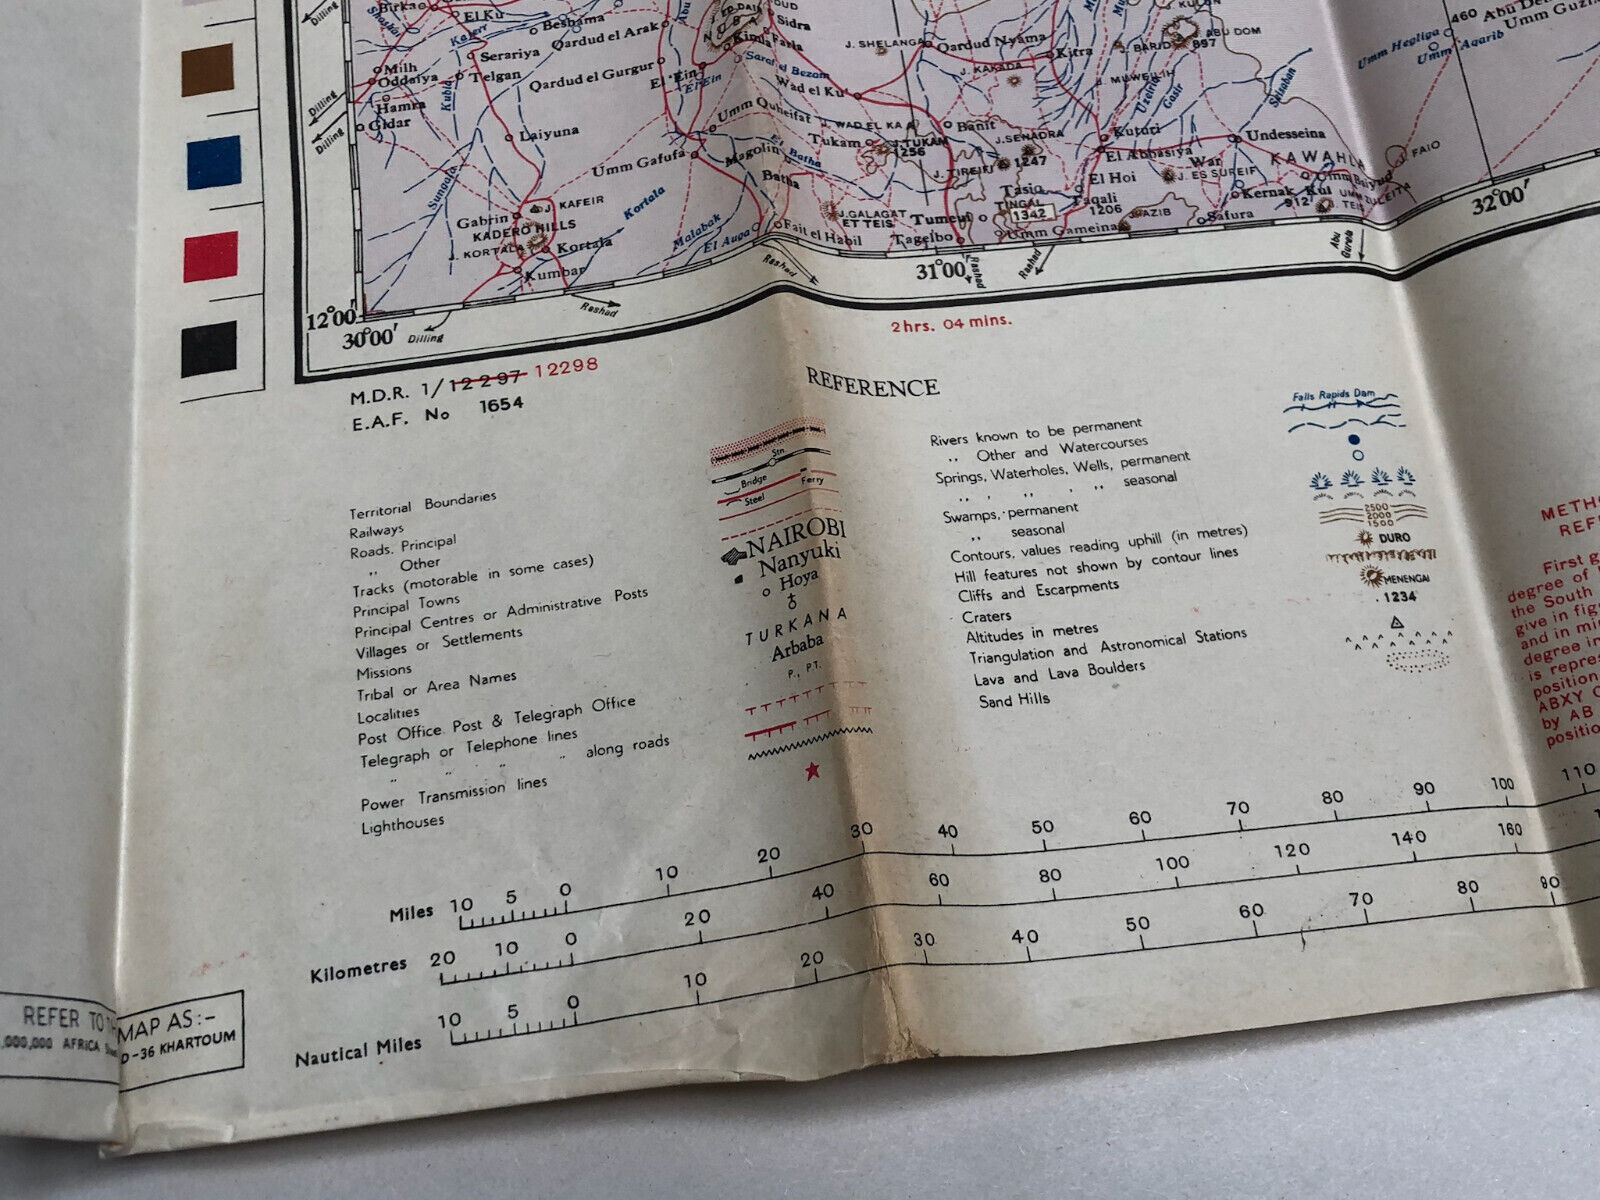 Dilling
Birkao
El Ku
Kolerr
Beshama
Qardud el Arak
Serariya
Telgan
Milh
Oddaiya
Hamra
Gidar
Dilling
Dilling
Kubla
Sungola
Qardud el Gurgur
El 'Ein
El'Ein
Laiyuna
Umm Gafufa
Umm Quheifat
Magolin
Batha
El Batha
Sidra
Kimla
Farla
Saraf el Bezam
Wad el Ku'
J. SHELANGA
Qardud Nyama
Kitra
J. KAKADA
J. BARID
897
ABU DOM
J. KULUN
J. MUWEILIH
Uzeira
Gasr
Shisabin
J. WAD EL KA A
Tukam
J. TUKAM
1256
Banit
J. SENADRA
1247
J. TIREIFI
Kuturi
El Abbasiya
Undesseina
War
J. ES SUREIF
KAWAHLA
J. FAIO
Umm Baiyud
El Hoi
Tasio
TINGAL
1342
Taqali
1206
Kernak
Kul
912
J. AZIB
Safura
Umm Gameina
Tumeui
Tagelbo
J. GALAGAT
ET TEIS
Fait el Habil
El Auga
Malabak
Kortala
Gabrin
J. KAFEIR
KADERO HILLS
J. KORTALA
Kortala
Kumbar
460
Umm Hegliga
Umm 'Aqarib
Rashad
Rashad
Rashad
Abu
Gurela
12°00′
30°00′
Dilling
Rashad
31°00′
32°00′
2hrs. 04 mins.
M.D.R. 1/12297 12298
E.A.F. No 1654
REFERENCE
Territorial Boundaries
Railways
Stn
Roads, Principal
Bridge
Ferry
,, Other
Steel
Tracks (motorable in some cases)
Principal Towns
NAIROBI
Principal Centres or Administrative Posts
Nanyuki
Villages or Settlements
Hoya
Missions
Tribal or Area Names
TURKANA
Localities
Arbaba
Post Office Post & Telegraph Office
P., PT.
Telegraph or Telephone lines
,, ,, ,, ,, along roads
Power Transmission lines
Lighthouses
Rivers known to be permanent
Falls Rapids Dam
,, Other and Watercourses
Springs, Waterholes, Wells, permanent
,, , ,, , ,, seasonal
Swamps, permanent
,, seasonal
Contours, values reading uphill (in metres)
2500
2000
1500
Hill features not shown by contour lines
DURO
Cliffs and Escarpments
Craters
MENENGAI
Altitudes in metres
. 1234
Triangulation and Astronomical Stations
Lava and Lava Boulders
Sand Hills
METHO
REF
First g
degree of
the South
give in fig
and in mi
degree in
is repres
position
ABXY
by AB
positio
Miles 10 5 0 10 20 30 40 50 60 70 80 90 100 110
Kilometres 20 10 0 20 40 60 80 100 120 140 160
Nautical Miles 10 5 0 10 20 30 40 50 60 70 80 90
REFER TO
MAP AS:-
,000,000 AFRICA
D-36 KHARTOUM